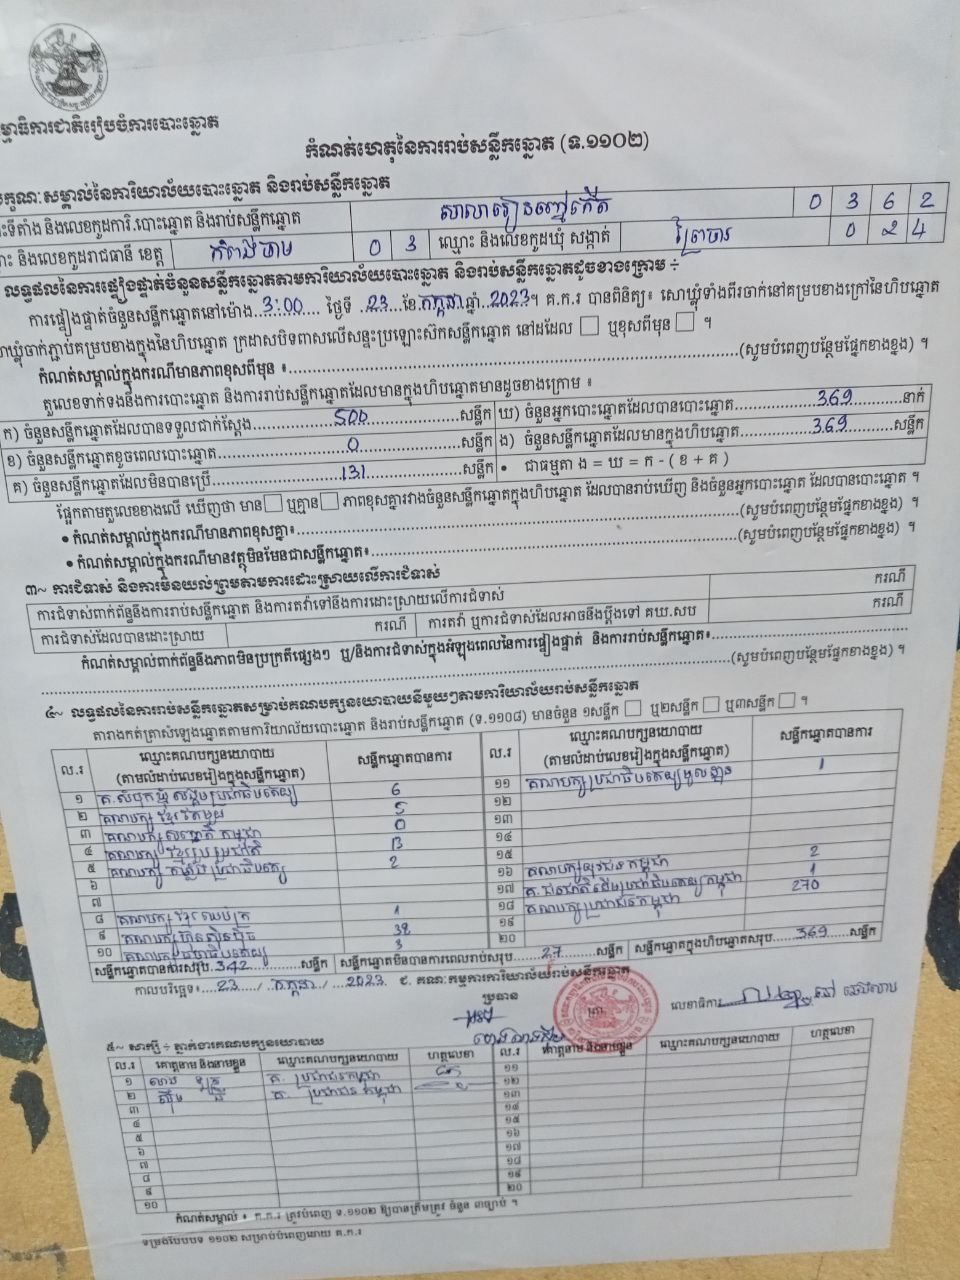 គណៈកម្មាធិការជាតិរៀបចំការបោះឆ្នោត
កំណត់ហេតុនៃការរាប់សន្លឹកឆ្នោត (ទ.១១០២)
សម្គាល់នៃការិយាល័យបោះឆ្នោត និងរាប់សន្លឹកឆ្នោត
ទីតាំង និងលេខកូដការិ.បោះឆ្នោត និងរាប់សន្លឹកឆ្នោត 0 3 6 2
និងលេខកូដរាជធានី ខេត្ត កំពង់ចាម 0 3 ឈ្មោះ និងលេខកូដឃុំ សង្កាត់ ព្រៃចារ 0 2 4
លទ្ធផលនៃការផ្ទៀងផ្ទាត់ចំនួនសន្លឹកឆ្នោតតាមការិយាល័យបោះឆ្នោត និងរាប់សន្លឹកឆ្នោតដូចខាងក្រោម ÷
ការផ្ទៀងផ្ទាត់ចំនួនសន្លឹកឆ្នោតនៅម៉ោង 3:00 ថ្ងៃទី 23 ខែ កក្កដា ឆ្នាំ 2023។ គ.ក.រ បានពិនិត្យ៖ សោឃ្លុំទាំងពីរចាក់នៅគម្របខាងក្រៅនៃហិបឆ្នោត
សោឃ្លុំចាក់ភ្ជាប់គម្របខាងក្នុងនៃហិបឆ្នោត ក្រដាសបិទពាសលើសន្ទះប្រឡោះស៊កសន្លឹកឆ្នោត នៅដដែល □ ឬខុសពីមុន □ ។
កំណត់សម្គាល់ក្នុងករណីមានភាពខុសពីមុន ៖ (សូមបំពេញបន្ថែមផ្នែកខាងខ្នង) ។
តួលេខទាក់ទងនឹងការបោះឆ្នោត និងការរាប់សន្លឹកឆ្នោតដែលមានក្នុងហិបឆ្នោតមានដូចខាងក្រោម ៖
ក) ចំនួនសន្លឹកឆ្នោតដែលបានទទួលជាក់ស្តែង 500 សន្លឹក ឃ) ចំនួនអ្នកបោះឆ្នោតដែលបានបោះឆ្នោត 369 នាក់
ខ) ចំនួនសន្លឹកឆ្នោតខូចពេលបោះឆ្នោត 0 សន្លឹក ង) ចំនួនសន្លឹកឆ្នោតដែលមានក្នុងហិបឆ្នោត 369 សន្លឹក
គ) ចំនួនសន្លឹកឆ្នោតដែលមិនបានប្រើ 131 សន្លឹក • ជាធម្មតា ង = ឃ = ក - ( ខ + គ )
ផ្អែកតាមតួលេខខាងលើ ឃើញថា មាន □ ឬគ្មាន □ ភាពខុសគ្នារវាងចំនួនសន្លឹកឆ្នោតក្នុងហិបឆ្នោត ដែលបានរាប់ឃើញ និងចំនួនអ្នកបោះឆ្នោត ដែលបានបោះឆ្នោត ។
• កំណត់សម្គាល់ក្នុងករណីមានភាពខុសគ្នា៖ (សូមបំពេញបន្ថែមផ្នែកខាងខ្នង) ។
• កំណត់សម្គាល់ក្នុងករណីមានវត្ថុមិនមែនជាសន្លឹកឆ្នោត៖ (សូមបំពេញបន្ថែមផ្នែកខាងខ្នង) ។
៣~ ការជំទាស់ និងការមិនយល់ព្រមតាមការដោះស្រាយលើការជំទាស់
ការជំទាស់ពាក់ព័ន្ធនឹងការរាប់សន្លឹកឆ្នោត និងការតវ៉ាទៅនឹងការដោះស្រាយលើការជំទាស់ ករណី
ការជំទាស់ដែលបានដោះស្រាយ ករណី ការតវ៉ា ឬការជំទាស់ដែលអាចនឹងប្តឹងទៅ គឃ.សប ករណី
កំណត់សម្គាល់ពាក់ព័ន្ធនឹងភាពមិនប្រក្រតីផ្សេងៗ ឬ/និងការជំទាស់ក្នុងអំឡុងពេលនៃការផ្ទៀងផ្ទាត់ និងការរាប់សន្លឹកឆ្នោត៖
(សូមបំពេញបន្ថែមផ្នែកខាងខ្នង) ។
៤~ លទ្ធផលនៃការរាប់សន្លឹកឆ្នោតសម្រាប់គណបក្សនយោបាយនីមួយៗតាមការិយាល័យរាប់សន្លឹកឆ្នោត
តារាងកត់ត្រាសំឡេងឆ្នោតតាមការិយាល័យបោះឆ្នោត និងរាប់សន្លឹកឆ្នោត (ទ.១១០៨) មានចំនួន ១សន្លឹក □ ឬ២សន្លឹក □ ឬ៣សន្លឹក □ ។
ល.រ ឈ្មោះគណបក្សនយោបាយ (តាមលំដាប់លេខរៀងក្នុងសន្លឹកឆ្នោត) សន្លឹកឆ្នោតបានការ ល.រ ឈ្មោះគណបក្សនយោបាយ (តាមលំដាប់លេខរៀងក្នុងសន្លឹកឆ្នោត) សន្លឹកឆ្នោតបានការ
១ គ.សំបុកឃ្មុំ សង្គមប្រជាធិបតេយ្យ 6 ១១ គណបក្សប្រជាធិបតេយ្យមូលដ្ឋាន 1
២ គណបក្ស ខ្មែរតែមួយ 5 ១២
៣ គណបក្ស សញ្ជាតិ កម្ពុជា 0 ១៣
៤ គណបក្ស ខ្មែររួបរួមជាតិ 13 ១៤
៥ គណបក្ស កម្លាំងប្រជាធិបតេយ្យ 2 ១៥
៦ ១៦ គណបក្សយុវជនកម្ពុជា 2
៧ ១៧ គ.ជនជាតិដើមប្រជាធិបតេយ្យកម្ពុជា 1
៨ គណបក្ស ខ្មែរឈប់ក្រ 1 ១៨ គណបក្សប្រជាជនកម្ពុជា 270
៩ គណបក្សហ៊្វុនស៊ិនប៉ិច 38 ១៩
១០ គណបក្សធម្មាធិបតេយ្យ 3 ២០
សន្លឹកឆ្នោតបានការសរុប 342 សន្លឹក សន្លឹកឆ្នោតមិនបានការពេលរាប់សរុប 27 សន្លឹក សន្លឹកឆ្នោតក្នុងហិបឆ្នោតសរុប 369 សន្លឹក
កាលបរិច្ឆេទ៖ 23 / កក្កដា / 2023 ៩. គណៈកម្មការការិយាល័យរាប់សន្លឹកឆ្នោត
ប្រធាន លេខាធិការ
៥~ សាក្សី ÷ ភ្នាក់ងារគណបក្សនយោបាយ
ល.រ គោត្តនាម និងនាមខ្លួន ឈ្មោះគណបក្សនយោបាយ ហត្ថលេខា ល.រ គោត្តនាម និងនាមខ្លួន ឈ្មោះគណបក្សនយោបាយ ហត្ថលេខា
១ គ. ប្រជាជនកម្ពុជា ១១
២ គ. ប្រជាជនកម្ពុជា ១២
៣ ១៣
៤ ១៤
៥ ១៥
៦ ១៦
៧ ១៧
៨ ១៨
៩ ១៩
១០ ២០
កំណត់សម្គាល់ ៖ គ.ក.រ ត្រូវបំពេញ ទ.១១០២ ឱ្យបានត្រឹមត្រូវ ចំនួន ៣ច្បាប់ ។
ទម្រង់បែបបទ ១១០២ សម្រាប់បំពេញដោយ គ.ក.រ